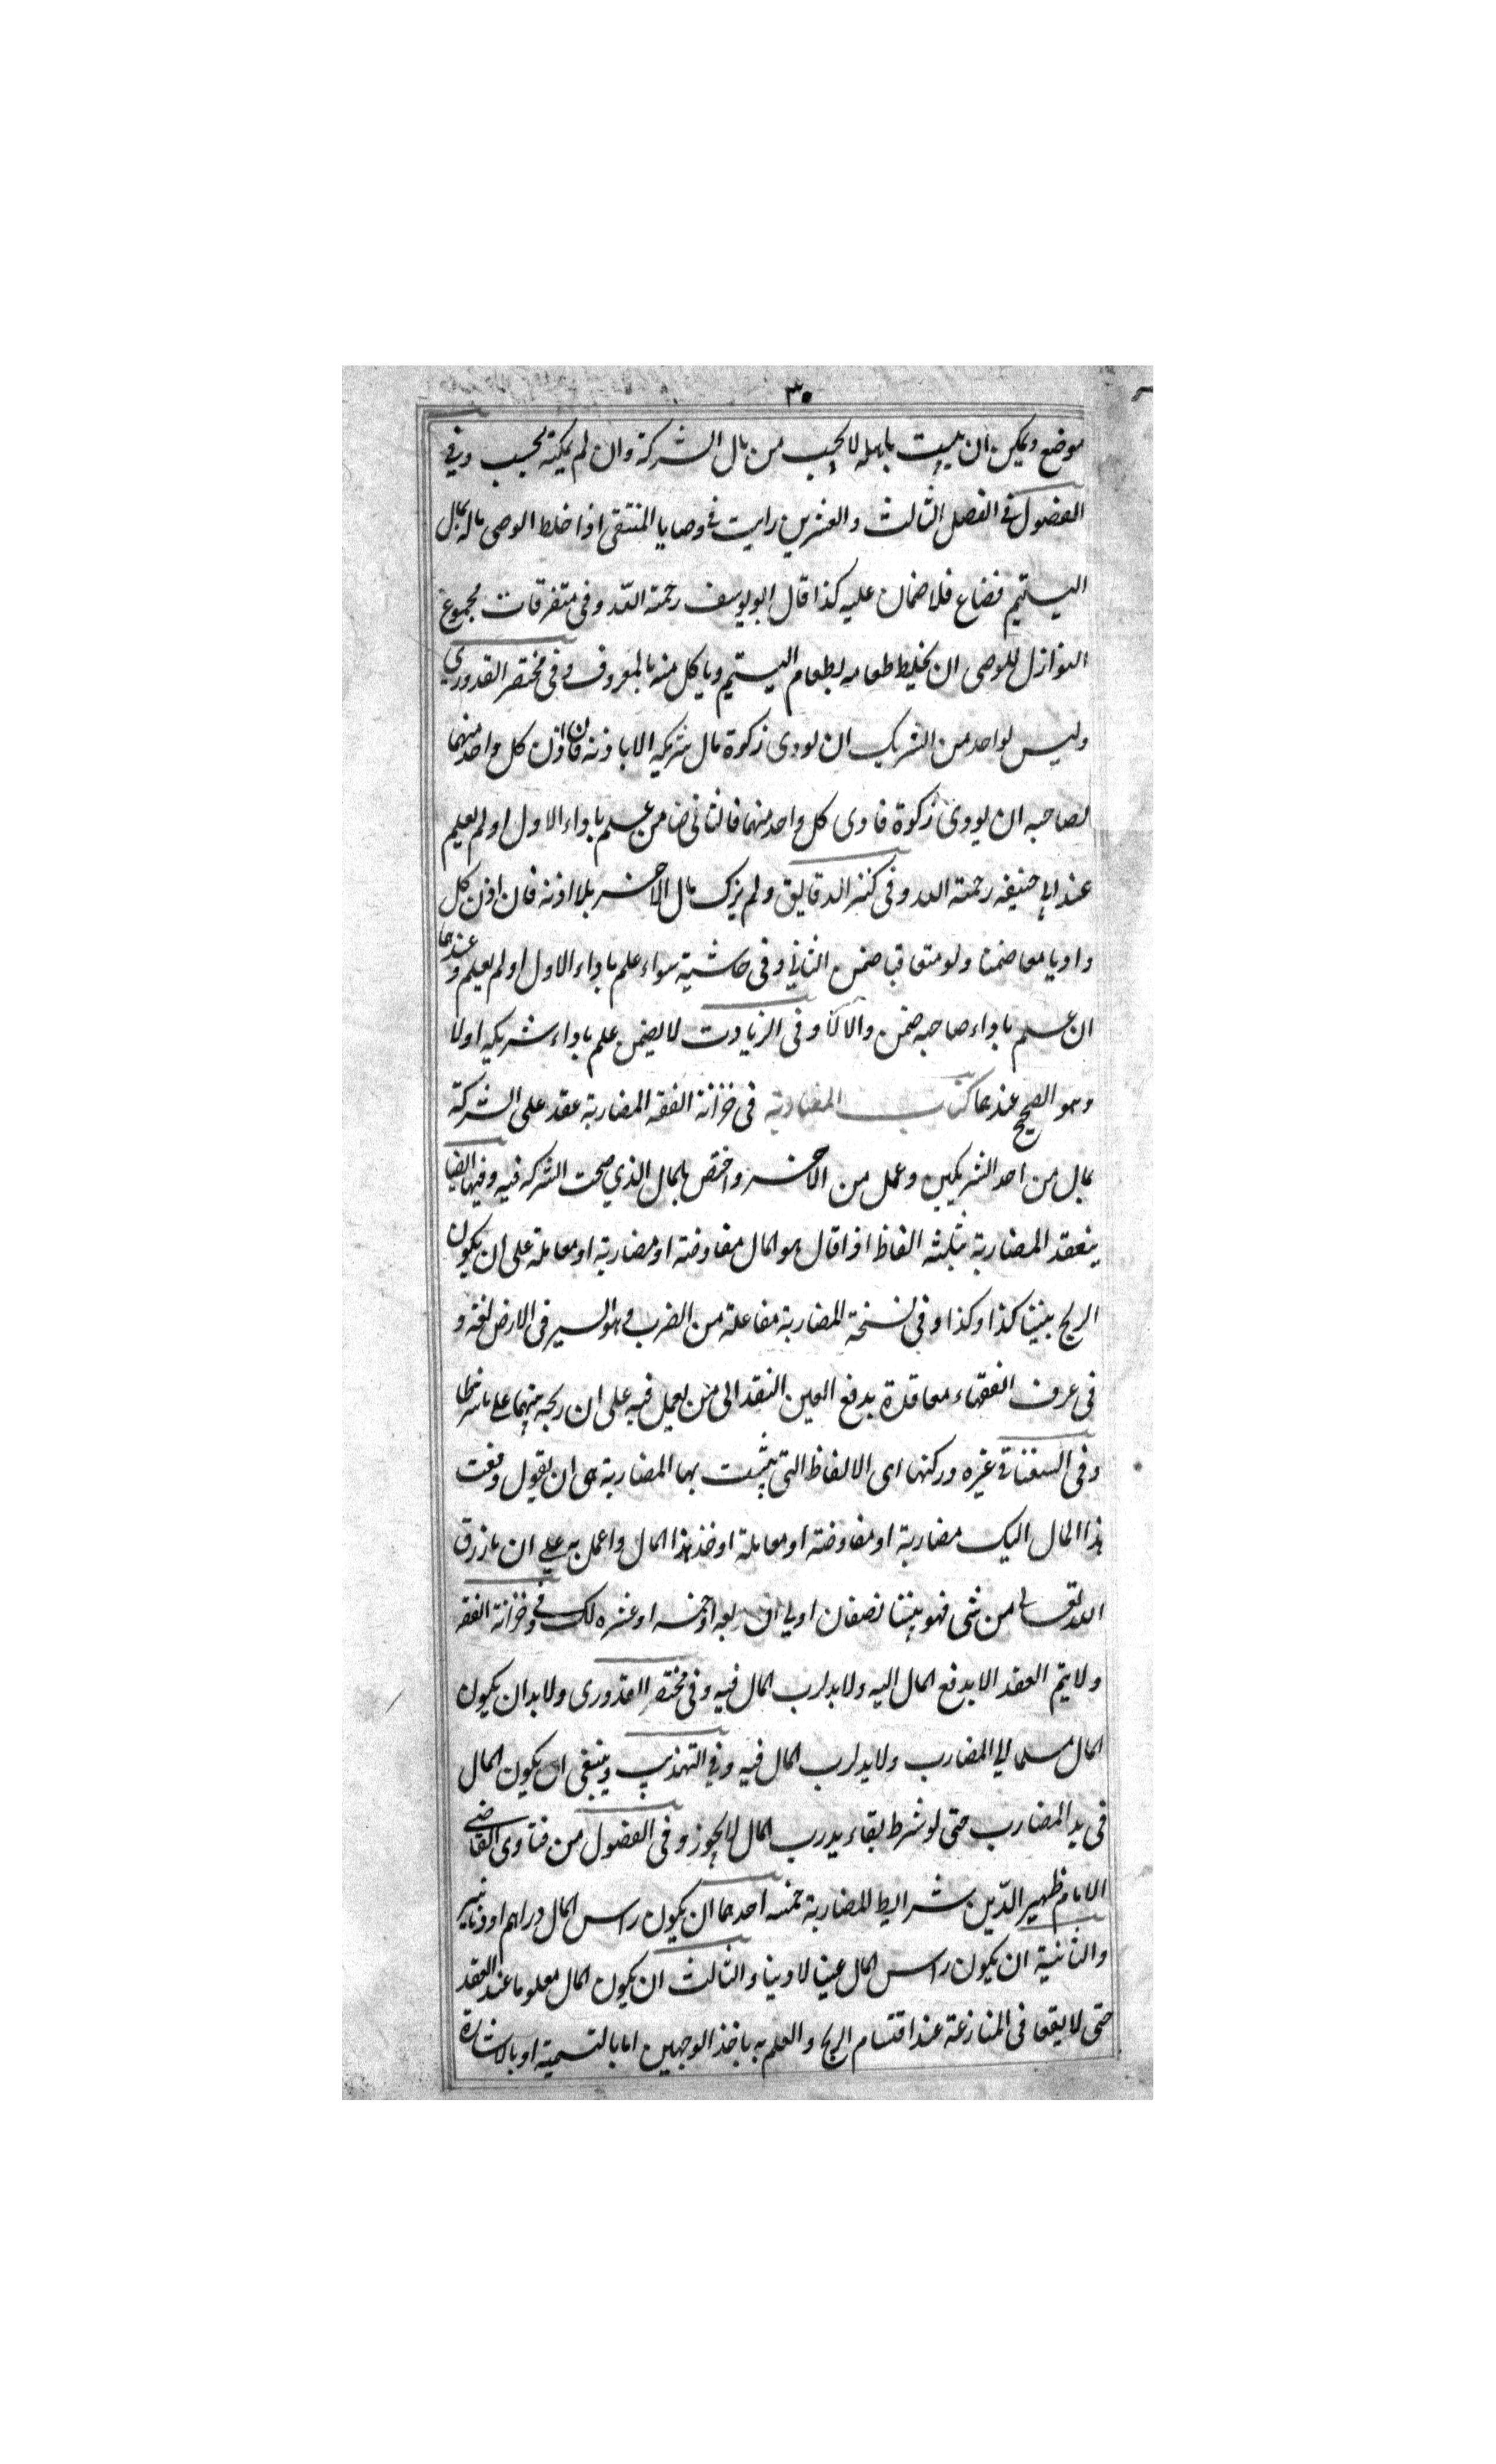 ٣٠
موضع ويمكن ان يبيت باهله لايحب من مال الشركة وان لم يمكنه يحسب وفي
الفصول في الفصل الثالث والعشرين رايت في وصايا المنتقى اذا خلط الوصى ماله بمال
اليتيم فضاع فلا ضمان عليه كذا قال ابو يوسف رحمة الله وفى متفرقات مجموع
النوازل للوصى ان يخلط طعامه بطعام اليتيم وياكل منه بالمعروف وفى مختصر القدورى
وليس لواحد من الشريك ان يودى زكوة مال شريكه الا باذنه فان اذن كل واحد منهما
لصاحبه ان يودى زكوة فادى كل واحد منهما فالثانى ضامن علم باداء الاول او لم يعلم
عند ابي حنيفه رحمة الله وفى كنز الدقايق ولم يزك مال الاخر بلا اذنه فان اذن كل
واديا معا ضمنا ولو متعاقبا ضمن الثاني وفى حاشية سواء علم باداء الاول او لم يعلم وعندهما
ان علم باداء صاحبه ضمن والا لا وفى الزيادت لا يضمن علم باداء شريكه اولا
وهو الصحيح عندهما كتاب المضاربة فى خزانة الفقه المضاربة عقد على الشركة
بمال من احد الشريكين وعمل من الاخر واختص بالمال الذي صحت الشركه فيه وفيها ايضا
ينعقد المضاربة بثلثه الفاظ اذا قال هو المال مفاوضة او مضاربة او معاملة على ان يكون
الربح بيننا كذا وكذا وفى نسخة المضاربة مفاعلة من الضرب وهو السير فى الارض لغة و
فى عرف الفقهاء معاقدة بدفع العين النقد الى من يعمل فيه على ان ربحه بينهما على ما شرطا
وفى السغناقى غيره وركنها اى الالفاظ التى يثبت بها المضاربة هى ان يقول دفعت
هذا المال اليك مضاربة او مفاوضة او معاملة او خذ هذا المال واعمل به علي ان ما رزق
الله تعالى من شى فهو بيننا نصفان او لي ان ربعه او خمسه او عشره لك وفي خزانة الفقه
ولا يتم العقد الا بدفع المال اليه ولا يد لرب المال فيه وفى مختصر القدورى ولا بد ان يكون
المال مسلما الي المضارب ولا يد لرب المال فيه وفي التهذيب وينبغى ان يكون المال
فى يد المضارب حتى لو شرط بقاء يد رب المال لايجوز وفى الفصول من فتاوى القاضى
الامام ظهير الدين شرايط المضاربة خمسه احدها ان يكون راس المال دراهم او دنانير
والثانية ان يكون راس المال عينا لا دينا والثالث ان يكون المال معلوما عند العقد
حتى لا يقعا فى المنازعة عند اقتسام الربح والعلم به باخذ الوجهين اما بالتسمية او بالاشارة